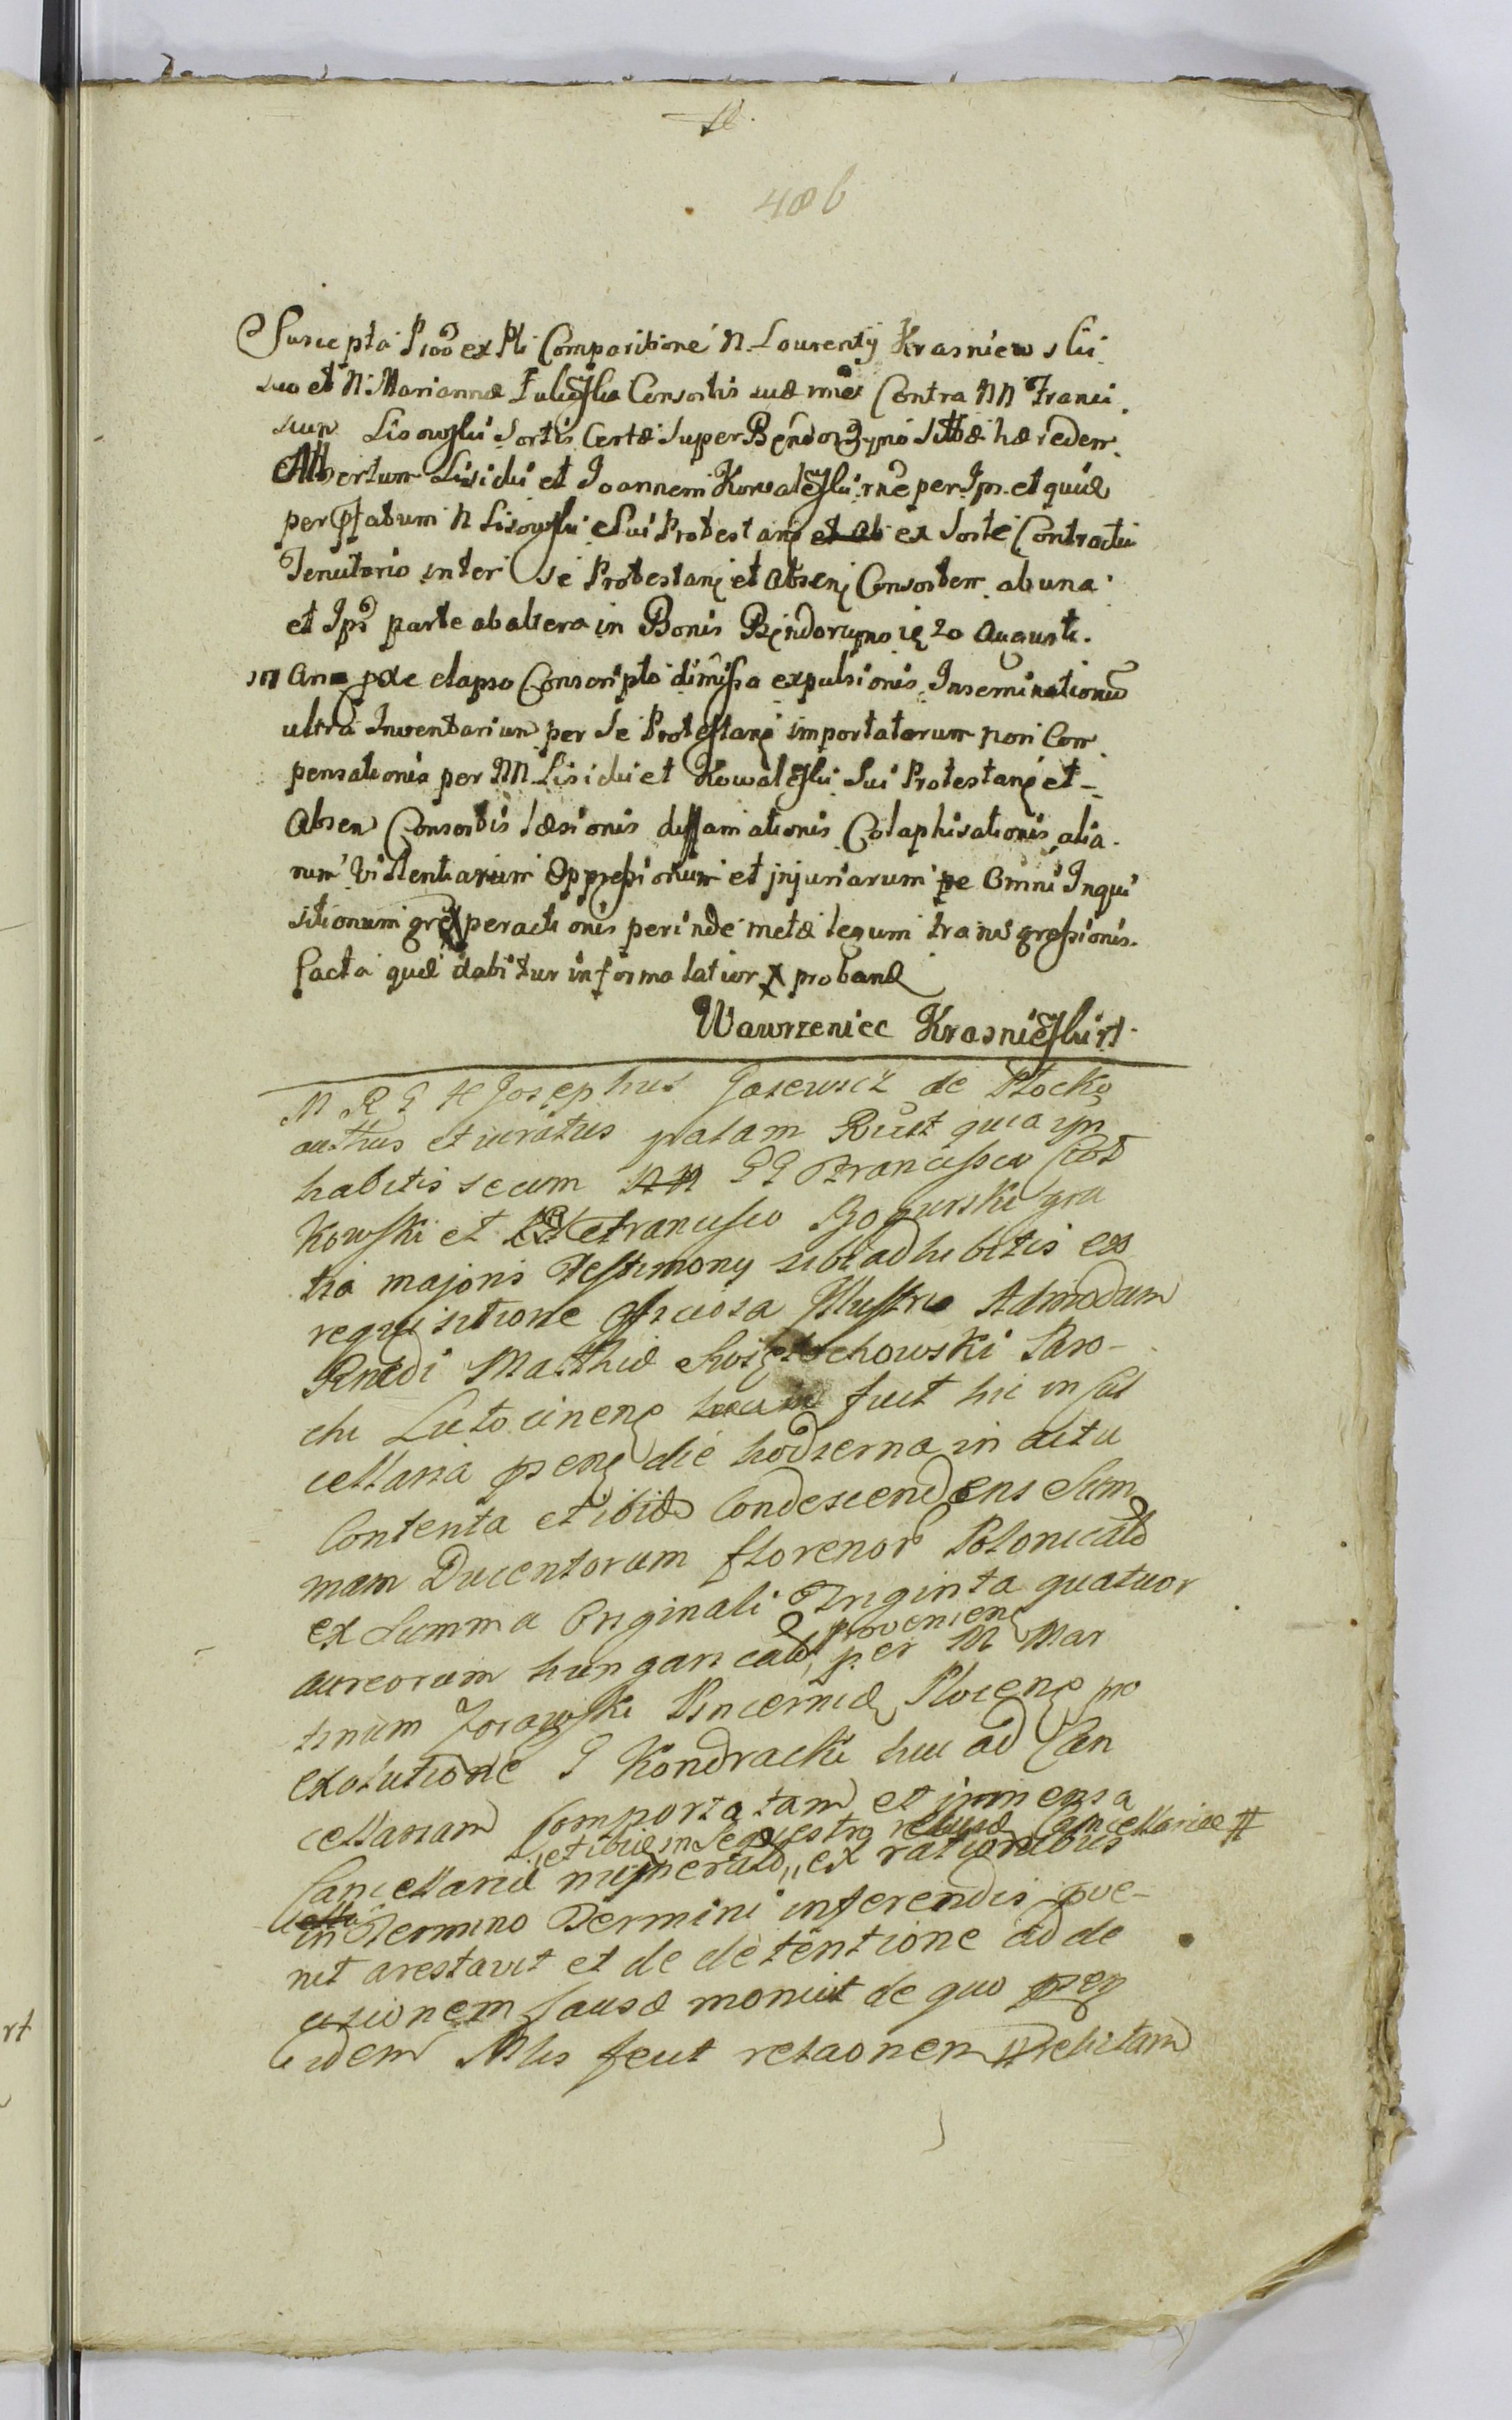 486
Suscepta Prōō ex Pli Comparitione N. Laurentij Krasniewski
suo et N. Mariannæ Consortis suæ nnie Contra NN Franci
scum Lisowski Sortis Certæ super Bendorzyno Sittæ hæredem
Albertum Lisicki et Joannem Kowalewski rnē per Ip. et quid
per Ptatum N Lisowski Sui Protestanȩ ex Sorte Contractu
Tenutorio inter se Protestanȩ et Absenȩ Consortem ab una
et Ips parte ab altera in Bonis Bendorzyno 20 Augusti
in An pde elapso Conscripto dimissa expulsionis Inseminationū
ultra Inventarium per se Protestanȩ importatarum non Com
pensationis per NN Lisicki et Kowalewski Sui Protestanȩ et
Absen Consortis læsionis diffamationis Colaphisationis alia
rum Violentiarum Oppressionum et injuriarum de Omni Inqui
sitionum peractionis perinde metæ legum transgressionis
facta quæ dabitur in forma latiori probanæ
Wawrzeniec Krasniewski rt
Josephus Gosewicz de Plocko
authus et iuratus palam Rcūt quia in
habitis secum GG Francisco Ciot
kowski et Francisco Bogurski gra
tia majoris Testimony sibi adhibitis ex
requisitione officiosa Illustris Admodum
Rndi Matthiæ Swiętochowski Paro-
chi Lutocinenȩ fuit hic in Can
cellaria psenȩ die hodierna in actu
Contenta et ibidē Condescendens Sum
mam Ducentorum florenorū Polonicalū
ex Summa Originali Triginta quatuor
aureorum hungaricalū provenienȩ per M Mar
tinum Zorawski Pincernidȩ Plocenȩ pro
exolutione G Kondracki huc ad Can
cellariam Comportatam et immensa
et ibidē in Sequestro Cancellariæ #
Cancellariæ numeratō, ex rationibus
in Termino Termini inferendis pve-
nit arestavit et de detentione ad de
cisionem Causæ monuit de quo pseȩ
Eidem Mlis fecit relaonem debitam